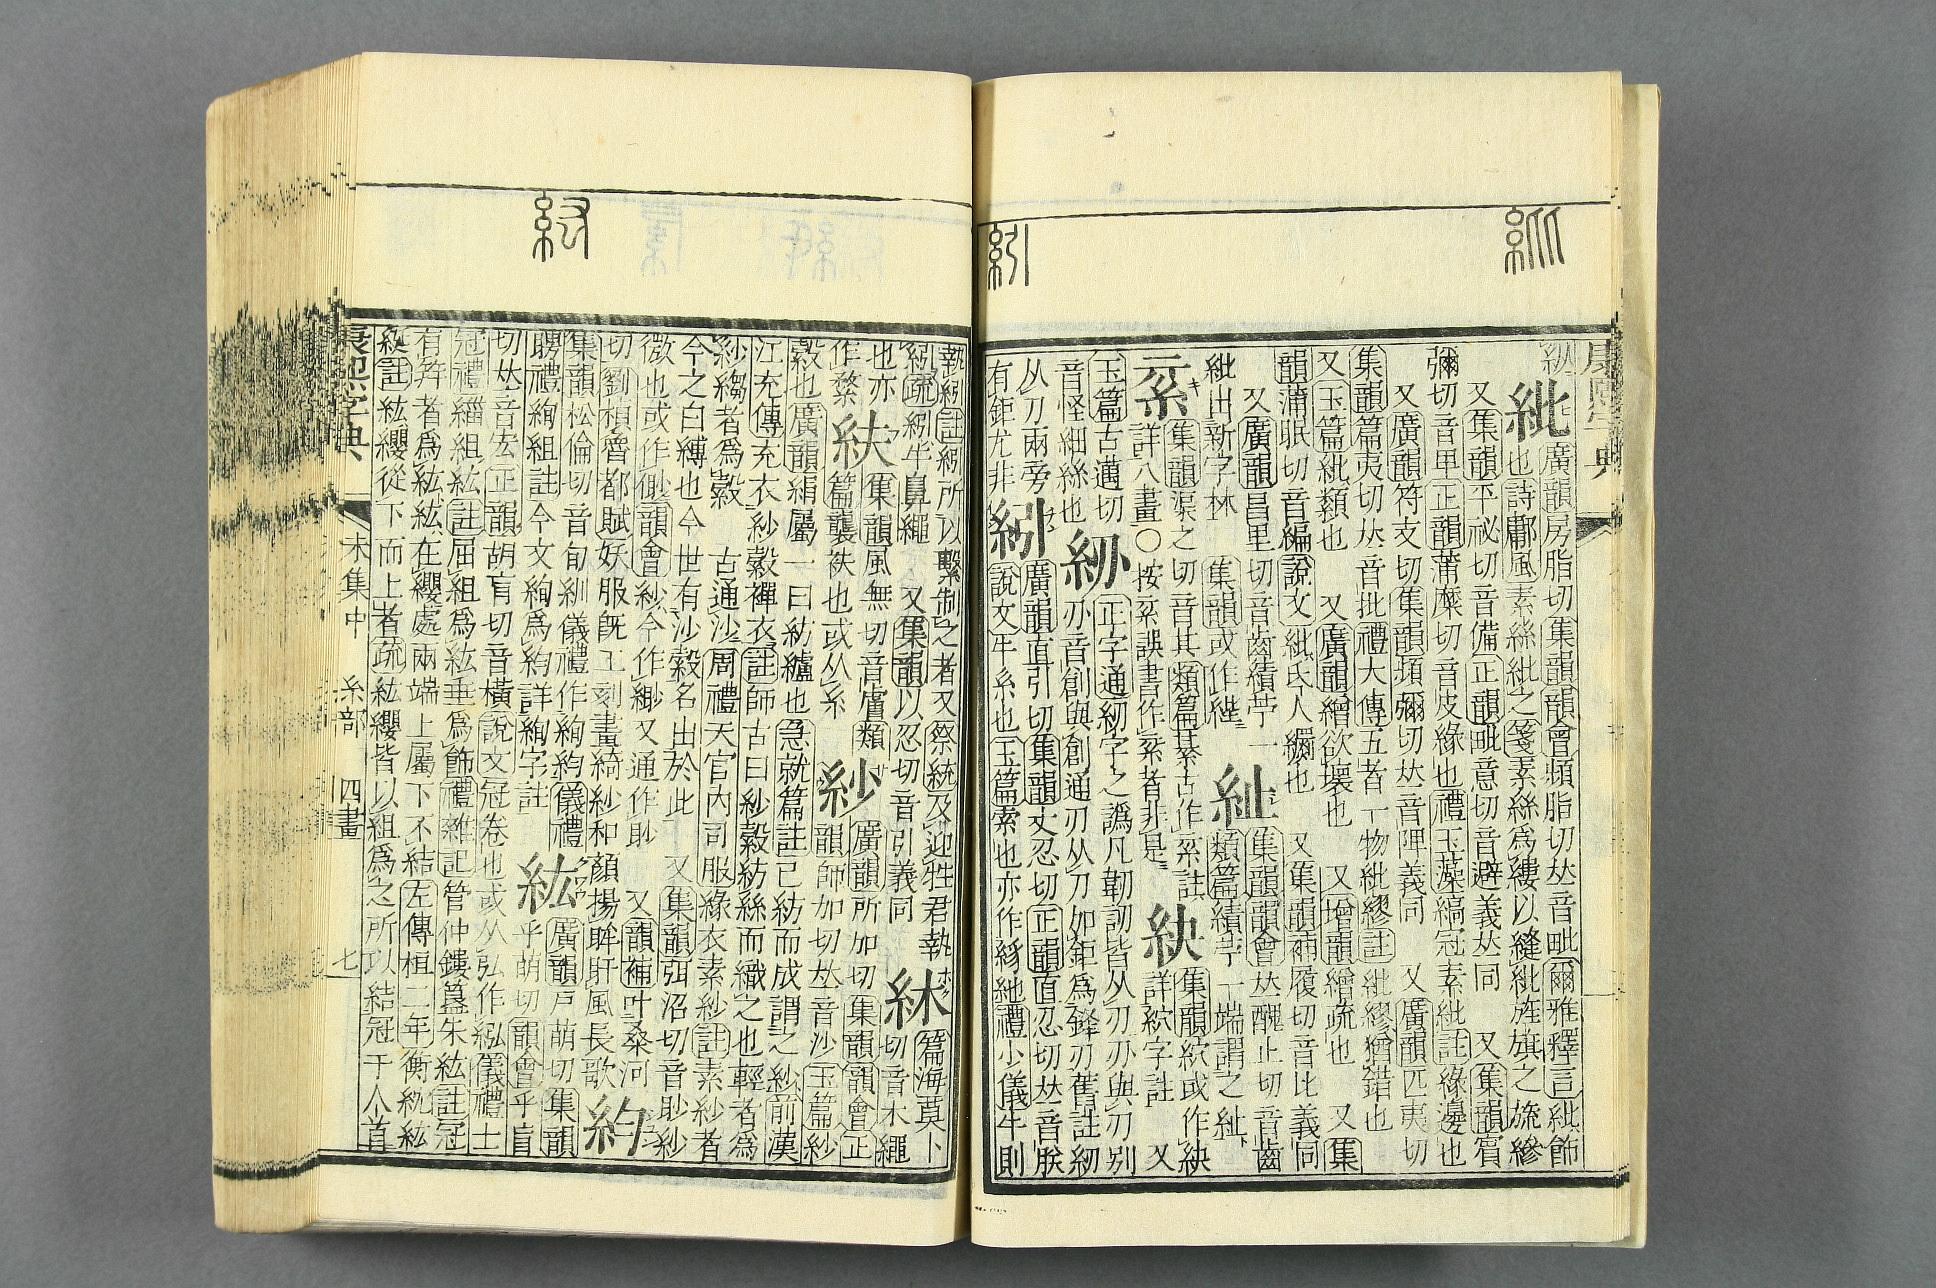 康熙字典
紕
廣韻房脂切集韻韻會頻脂切𠀤音毗爾雅釋言紕飾
也詩鄘風素絲紕之箋素絲爲縷以縫紕旌旗之旒縿
又集韻平祕切音備正韻毗意切音避義𠀤同　又集韻賓
彌切音卑正韻蒲麋切音皮緣也禮玉藻縞冠素紕註緣邊也
又廣韻符支切集韻頻彌切𠀤音陴義同　又廣韻匹夷切
集韻篇夷切𠀤音批禮大傳五者一物紕繆註紕繆猶錯也
又玉篇紕類也　又廣韻繒欲壞也　又增韻繒疏也　又集
韻蒲眠切音編說文紕氐人𦇧也　又集韻補履切音比義同
又廣韻昌里切音齒績苧一
紕出新字林　集韻或作
紪
集韻韻會𠀤醜止切音齒
類篇績苧一端謂之紪
集韻渠之切音其類篇綦古作
詳八畫〇按 誤書作 者非是
集韻 或作 又
詳 字註
玉篇古邁切
音怪細絲也
𥾛
正字通紉字之譌凡韌訒皆从刃刅與刃別
刅音創與創通刃从刀如鉅爲鋒刃舊註紉
从刀兩旁
有鉅尤非
紖
廣韻直引切集韻丈忍切正韻直忍切𠀤音朕
說文牛系也玉篇索也亦作 禮小儀牛則
執紖註紖所以繫制之者又祭統及迎牲君執
紖疏紖牛鼻繩　又集韻以忍切音引義同
𥾨
篇海莫卜
切音木繩
也亦
作
集韻風無切音膚類
篇襲袟也或从糸
紗
廣韻所加切集韻韻會正
韻師加切𠀤音沙玉篇紗
縠也廣韻絹屬一曰紡纑也急就篇註已紡而成謂之紗前漢
江充傳充衣紗縠襌衣註師古曰紗縠紡絲而織之也輕者爲
紗縐者爲縠　古通沙周禮天官內司服緣衣素紗註素紗者
今之白縛也今世有沙縠名出於此　又集韻弭沼切音眇紗
微也或作 韻會紗今作緲又通作眇　又韻補叶桑河
切劉楨魯都賦妖服旣工刻畫綺紗和顏揚眸盱風長歌
集韻松倫切音旬紃儀禮作絢 儀禮
聘禮絢組註今文絢爲 詳絢字註
紘
廣韻戸萌切集韻
乎萌切韻會乎盲
切𠀤音宏正韻胡盲切音橫說文冠卷也或从弘作紭儀禮士
冠禮緇組紘註屈組爲紘垂爲飾禮雜記管仲鏤簋朱紘註冠
有笄者爲紘紘在纓處兩端上屬下不結左傳桓二年衡紞紘
綖註紘纓從下而上者疏紘纓皆以組爲之所以結冠于人首
康熙字典　未集中　糸部　四畫　七